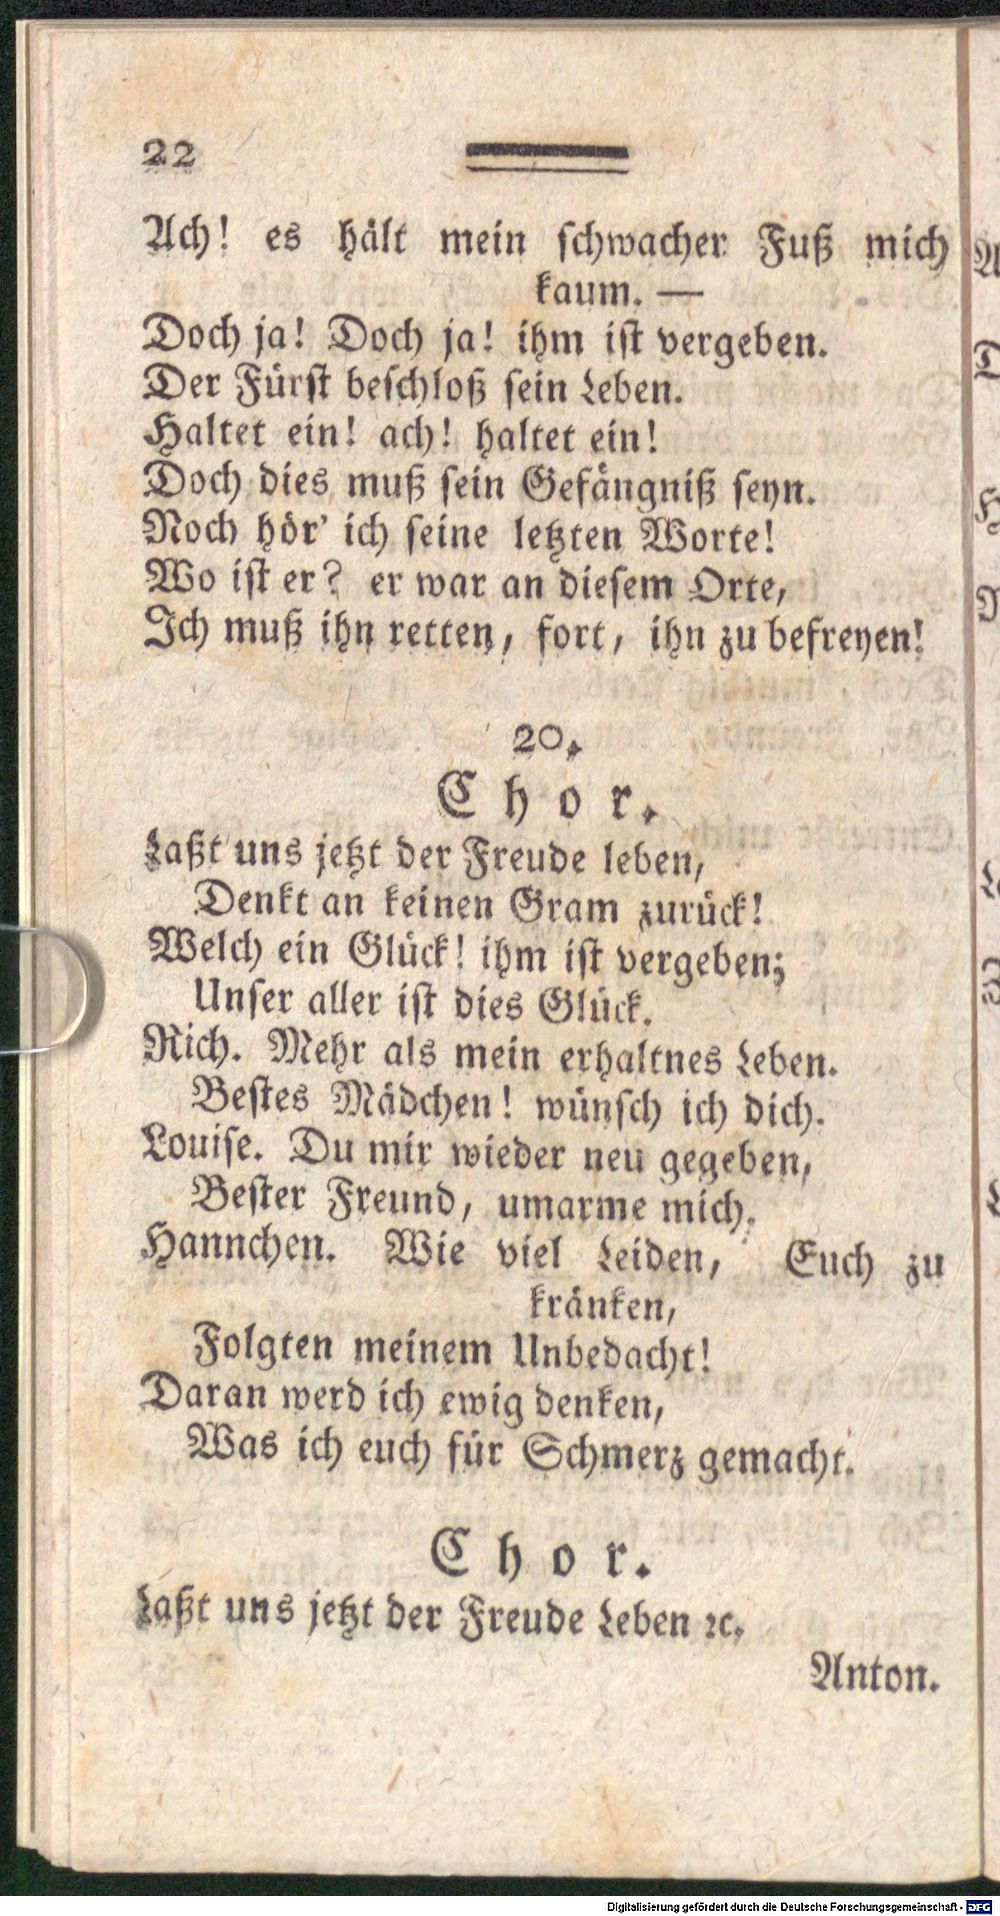 22
Ach! es hält mein schwacher Fuß mich
kaum. —
Doch ja! Doch ja! ihm ist vergeben.
Der Fürst beschloß sein Leben.
Haltet ein! ach! haltet ein!
Doch dies muß sein Gefängniß seyn.
Noch hör' ich seine letzten Worte!
Wo ist er? er war an diesem Orte,
Ich muß ihn retten, fort, ihn zu befreyen!
20.
Chor.
Laßt uns jetzt der Freude leben,
Denkt an keinen Gram zurück!
Welch ein Glück! ihm ist vergeben;
Unser aller ist dies Glück.
Rich. Mehr als mein erhaltnes Leben.
Bestes Mädchen! wünsch ich dich.
Louise. Du mir wieder neu gegeben,
Bester Freund, umarme mich.
Hannchen. Wie viel Leiden, Euch zu
kränken,
Folgten meinem Unbedacht!
Daran werd ich ewig denken,
Was ich euch für Schmerz gemacht.
Chor.
Laßt uns jetzt der Freude Leben ꝛc.
Anton.
Digitalisierung gefördert durch die Deutsche Forschungsgemeinschaft - DFG